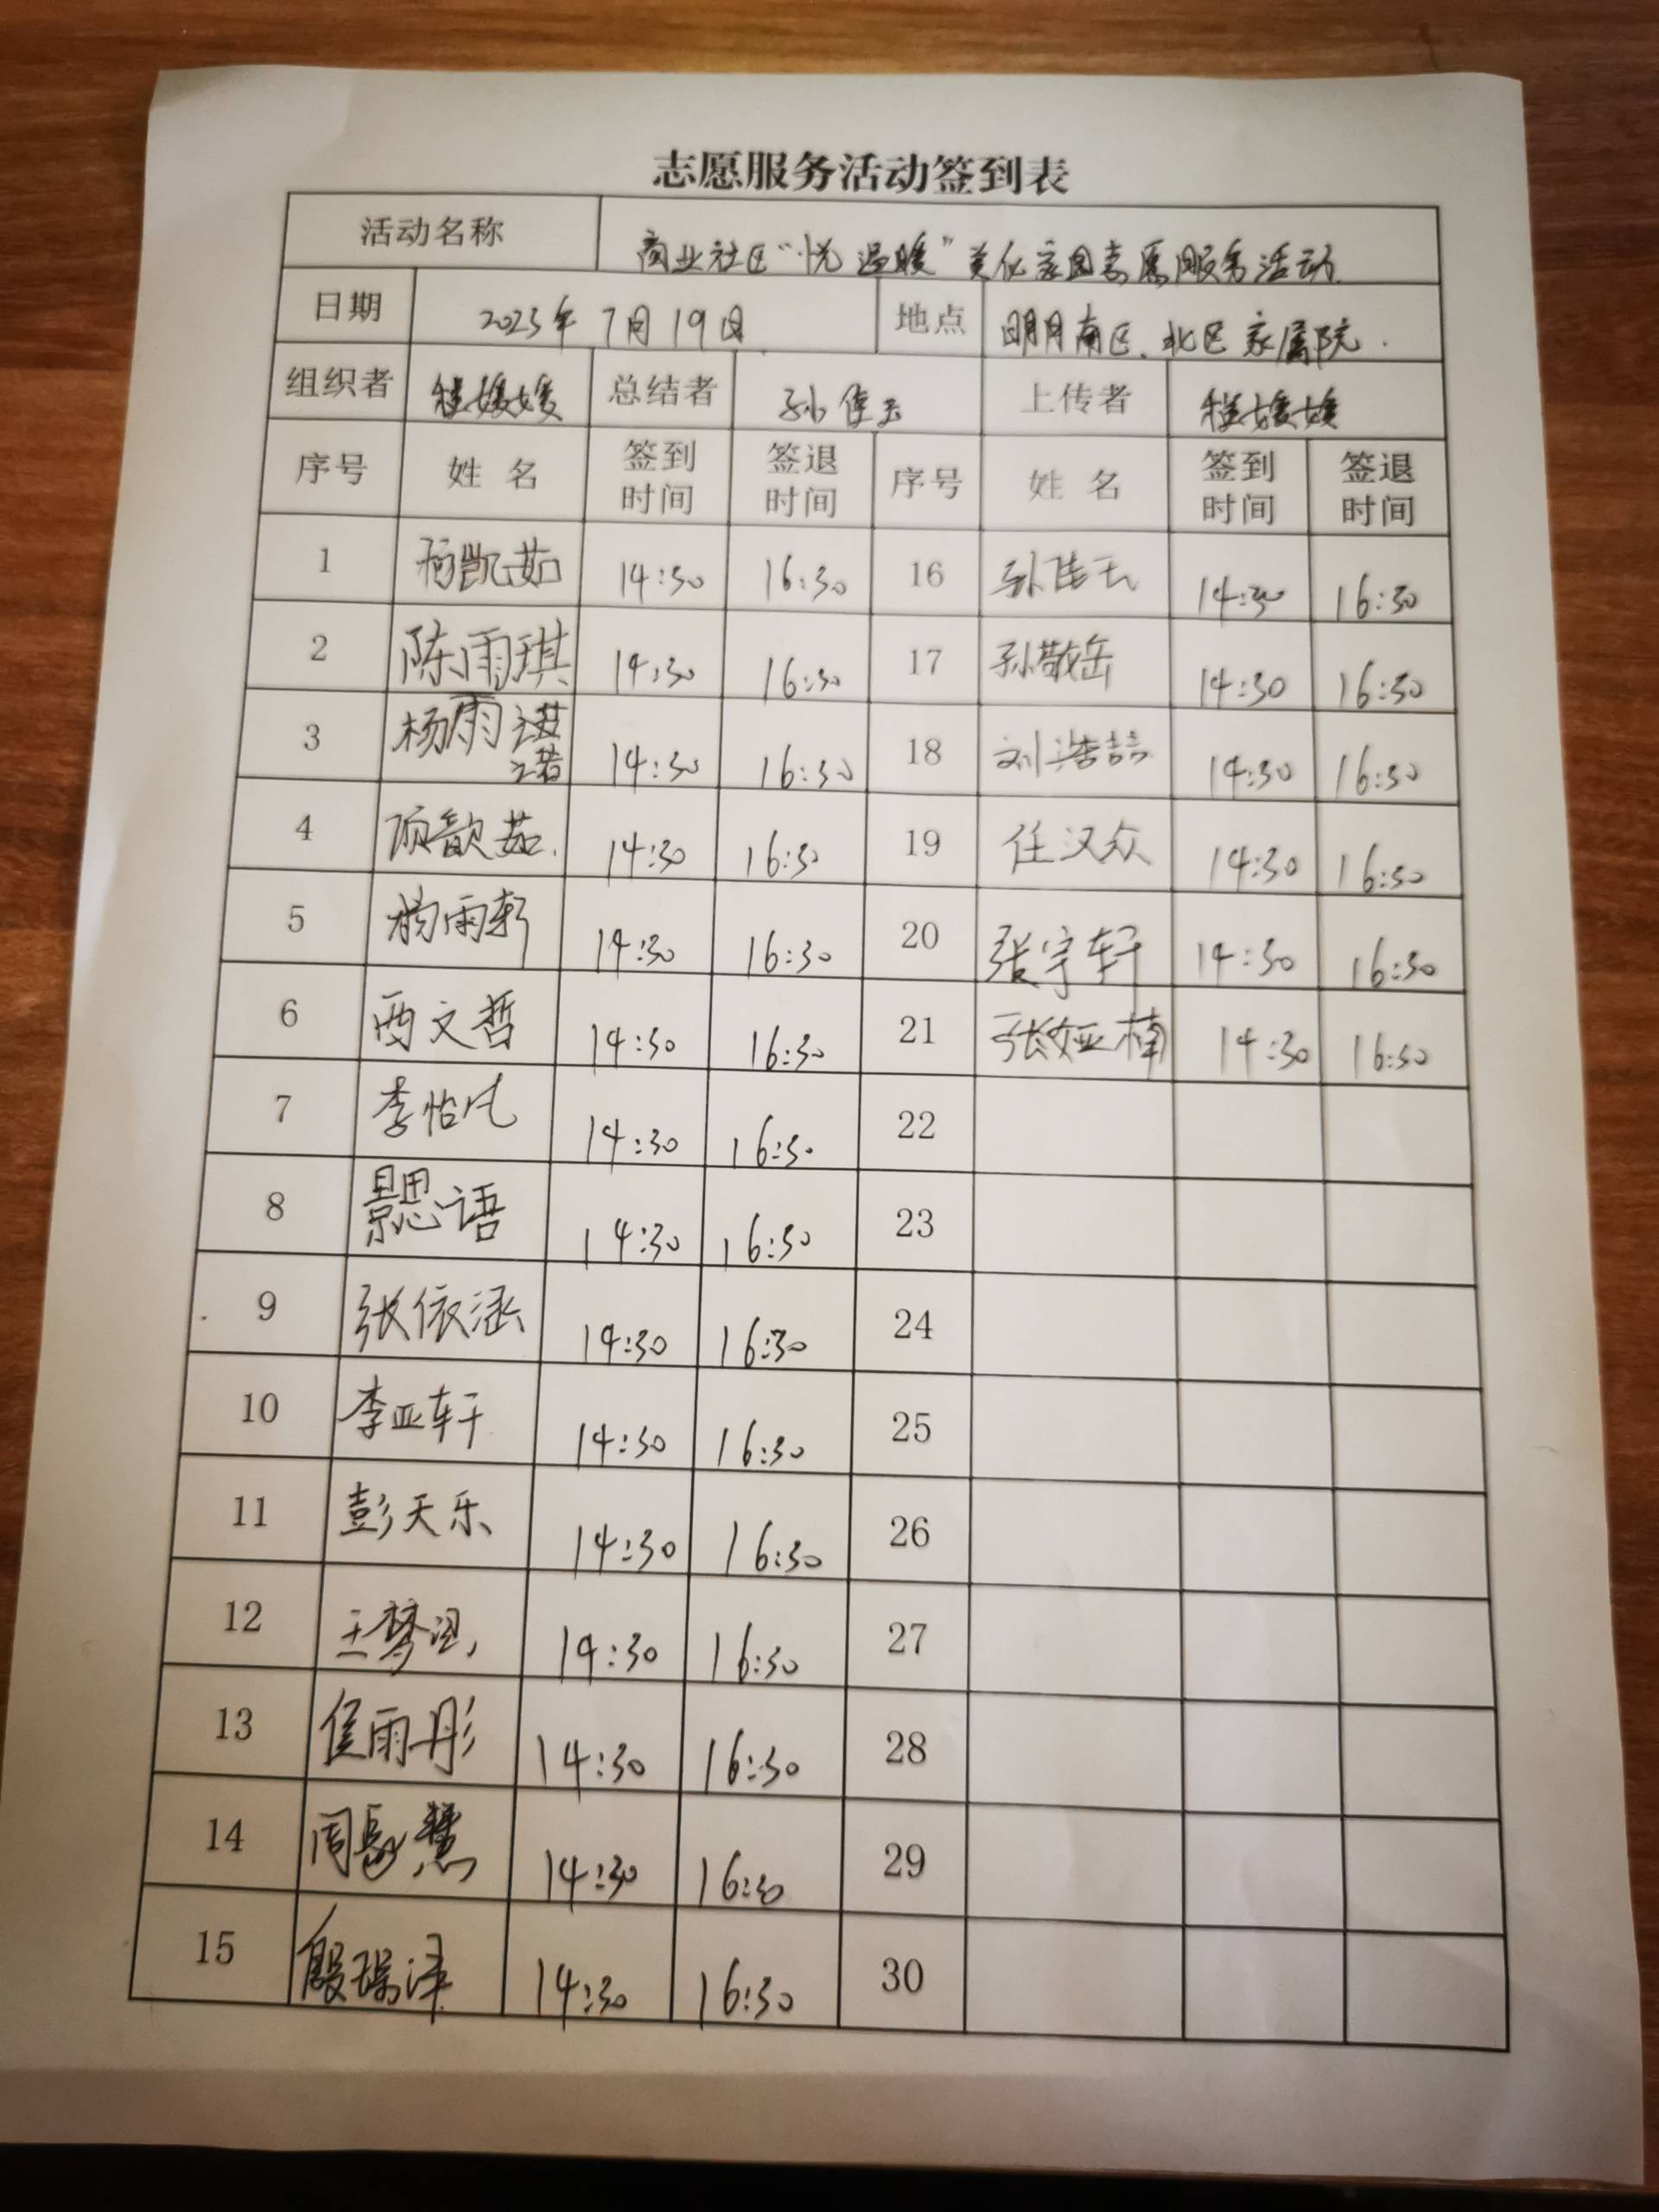 志愿服务活动签到表
活动名称 商业社区“悦 温暖”美化家园志愿服务活动.
日期 2023年7月19日 地点 明月南区、北区家属院.
组织者 程媛媛 总结者 孙佳 上传者 程媛媛
序号 姓名 签到时间 签退时间 序号 姓名 签到时间 签退时间
1 杨凯茹 14:30 16:30 16 孙佳 14:30 16:30
2 陈雨琪 14:30 16:30 17 孙敬岳 14:30 16:30
3 杨雨诺 14:30 16:30 18 刘浩喆 14:30 16:30
4 顾歆茹. 14:30 16:30 19 任汉众 14:30 16:30
5 杨雨轩 14:30 16:30 20 张宇轩 14:30 16:30
6 文哲 14:30 16:30 21 张娅楠 14:30 16:30
7 李怡凡 14:30 16:30 22
8 景思语 14:30 16:30 23
9 张依涵 14:30 16:30 24
10 李亚轩 14:30 16:30 25
11 彭天乐 14:30 16:30 26
12 王梦 14:30 16:30 27
13 侯雨彤 14:30 16:30 28
14 周慧 14:30 16:30 29
15 殷瑞泽 14:30 16:30 30